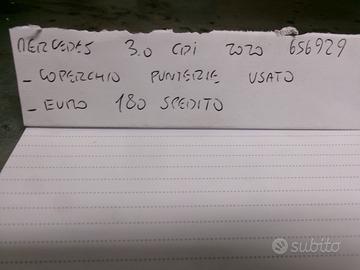 MERCEDES 3.0 CDI 2020 656929
- COPERCHIO PUNTERIE USATO
- EURO 180 SPEDITO
subito